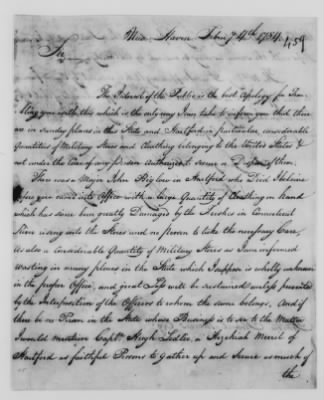 New Haven Febry 4th 1784
459
Sir
The Interest of the Public is the best Apology for Trou
bling you with this which is the only way I can take to inform you that there
are in sundry places in this State and Hartford in particular, considerable
Quantities of Military Stores and Cloathing belonging to the United States &
not under the Care of any Person Authorized to secure or Dispose of them.
There was a Major John Biglow in Hartford who Died I believe
before you came into Office with a large Quantity of Cloathing on hand
which has some been greatly Damaged by the Freshes in Connecticut
River among the Stores and no person to take the necessary Care,
As also a Considerable Quantity of Military Stores as I am informed
wasting in many places in the State which I suppose is wholly unknown
in the proper Office, and great Loss will be sustained unless prevented
by the Interposition of the Officers to whom the same belongs, And if
there be no Person in the State whose Business is to see to the Matter
I would mention Capt. Hugh Ledlie, or Hezekiah Merril of
Hartford as faithful Persons to gather up and Secure as much of
the